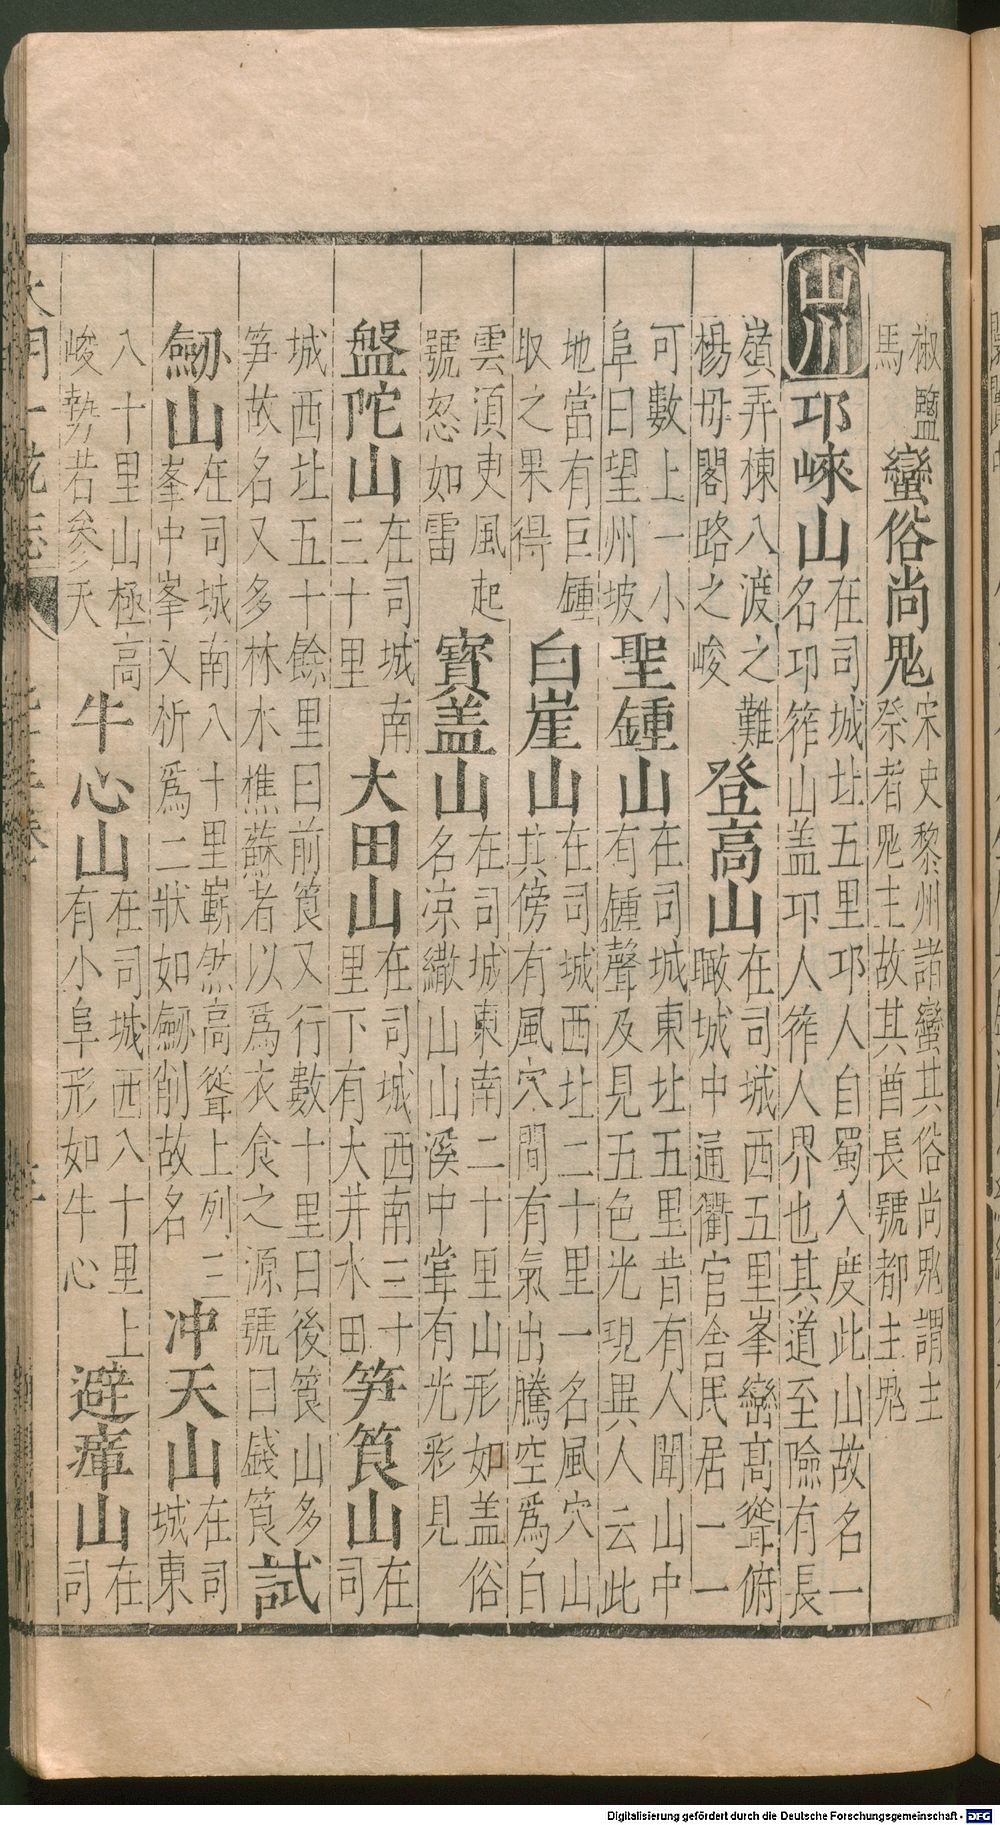 椒鹽
馬
蠻俗尚鬼
宋史黎州諸蠻其俗尚鬼謂主
祭者鬼主故其酋長號都主鬼
山川
邛崍山
在司城北五里邛人自蜀入度此山故名一
名邛筰山盖邛人筰人界也其道至險有長
嶺弄棟八渡之難
楊母閣路之峻
登高山
在司城西五里峯巒高聳俯
瞰城中通衢官舍民居一一
可數上一小
阜曰望州坡
聖鍾山
在司城東北五里昔有人聞山中
有鍾聲及見五色光現異人云此
地當有巨鍾
取之果得
白崖山
在司城西北二十里一名風穴山
其傍有風穴間有氣出騰空爲白
雲湏臾風起
號怒如雷
寳盖山
在司城東南二十里山形如盖俗
名凉繖山山溪中嘗有光彩見
盤陀山
在司城南
三十里
大田山
在司城西南三十
里下有大井水田
笋筤山
在
司
城西北五十餘里曰前筤又行數十里曰後筤山多
笋故名又多林木樵蘇者以爲衣食之源號曰錢筤
試
劒山
在司城南八十里嶄然高聳上列三
峯中峯又析爲二狀如劒削故名
冲天山
在司
城東
八十里山極高
峻勢若參天
牛心山
在司城西八十里上
有小阜形如牛心
避瘴山
在
司
大明一統志
Digitalisierung gefördert durch die Deutsche Forschungsgemeinschaft - DFG